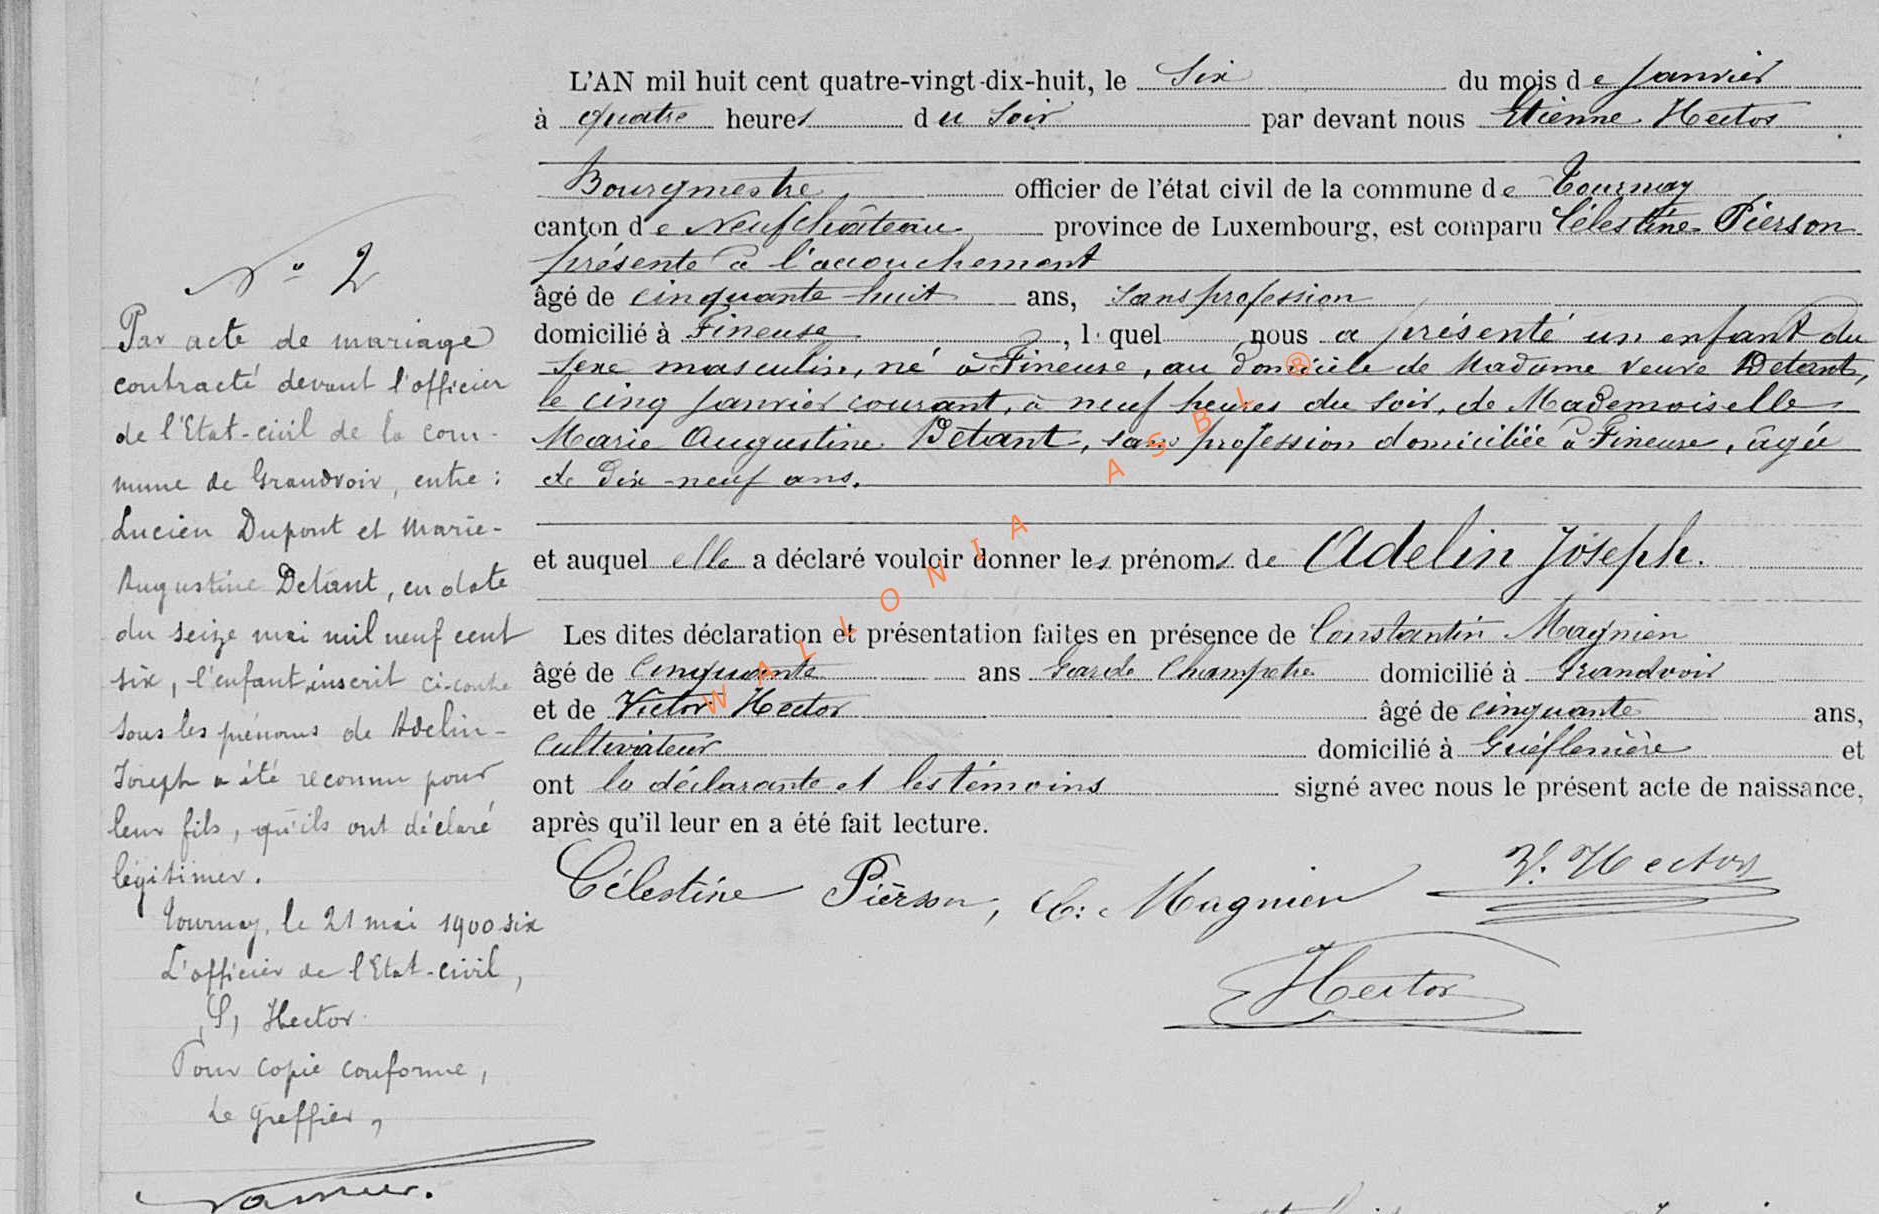 N° 2
Par acte de mariage
contracté devant l'officier
de l'Etat-civil de la com-
mune de Grandvoir, entre :
Lucien Dupont et Marie-
Augustine Detant, en date
du seize mai mil neuf cent
six, l'enfant inscrit ci-contre
sous les prénoms de Adelin-
Joseph a été reconnu pour
leur fils, qu'ils ont déclaré
légitimer.
Tournay, le 21 mai 1900 six
L'officier de l'Etat-civil,
(S) Hector
Pour copie conforme,
Le Greffier,
L'AN mil huit cent quatre-vingt-dix-huit, le six du mois de Janvier
à quatre heures du soir par devant nous Etienne Hector
Bourgmestre officier de l'état civil de la commune de Tournay
canton de Neufchâteau province de Luxembourg, est comparu Célestine Pierson
présente à l'accouchement
âgé de cinquante huit ans, sans profession
domicilié à Fineuse, l quel nous a présenté un enfant du
sexe masculin, né à Fineuse, au domicile de Madame veuve Detant,
le cinq Janvier courant, à neuf heures du soir, de Mademoiselle
Marie Augustine Detant, sans profession domiciliée à Fineuse, âgée
de dix-neuf ans.
et auquel elle a déclaré vouloir donner les prénoms de Adelin Joseph.
Les dites déclaration et présentation faites en présence de Constantin Magnien
âgé de cinquante ans Garde Champetre domicilié à Grandvoir
et de Victor Hector âgé de cinquante ans,
cultivateur domicilié à Grieflenière et
ont la déclarante et les témoins signé avec nous le présent acte de naissance,
après qu'il leur en a été fait lecture.
Célestine Pierson, C. Magnien V. Hector
Hector
WALLONIA ASBL ®